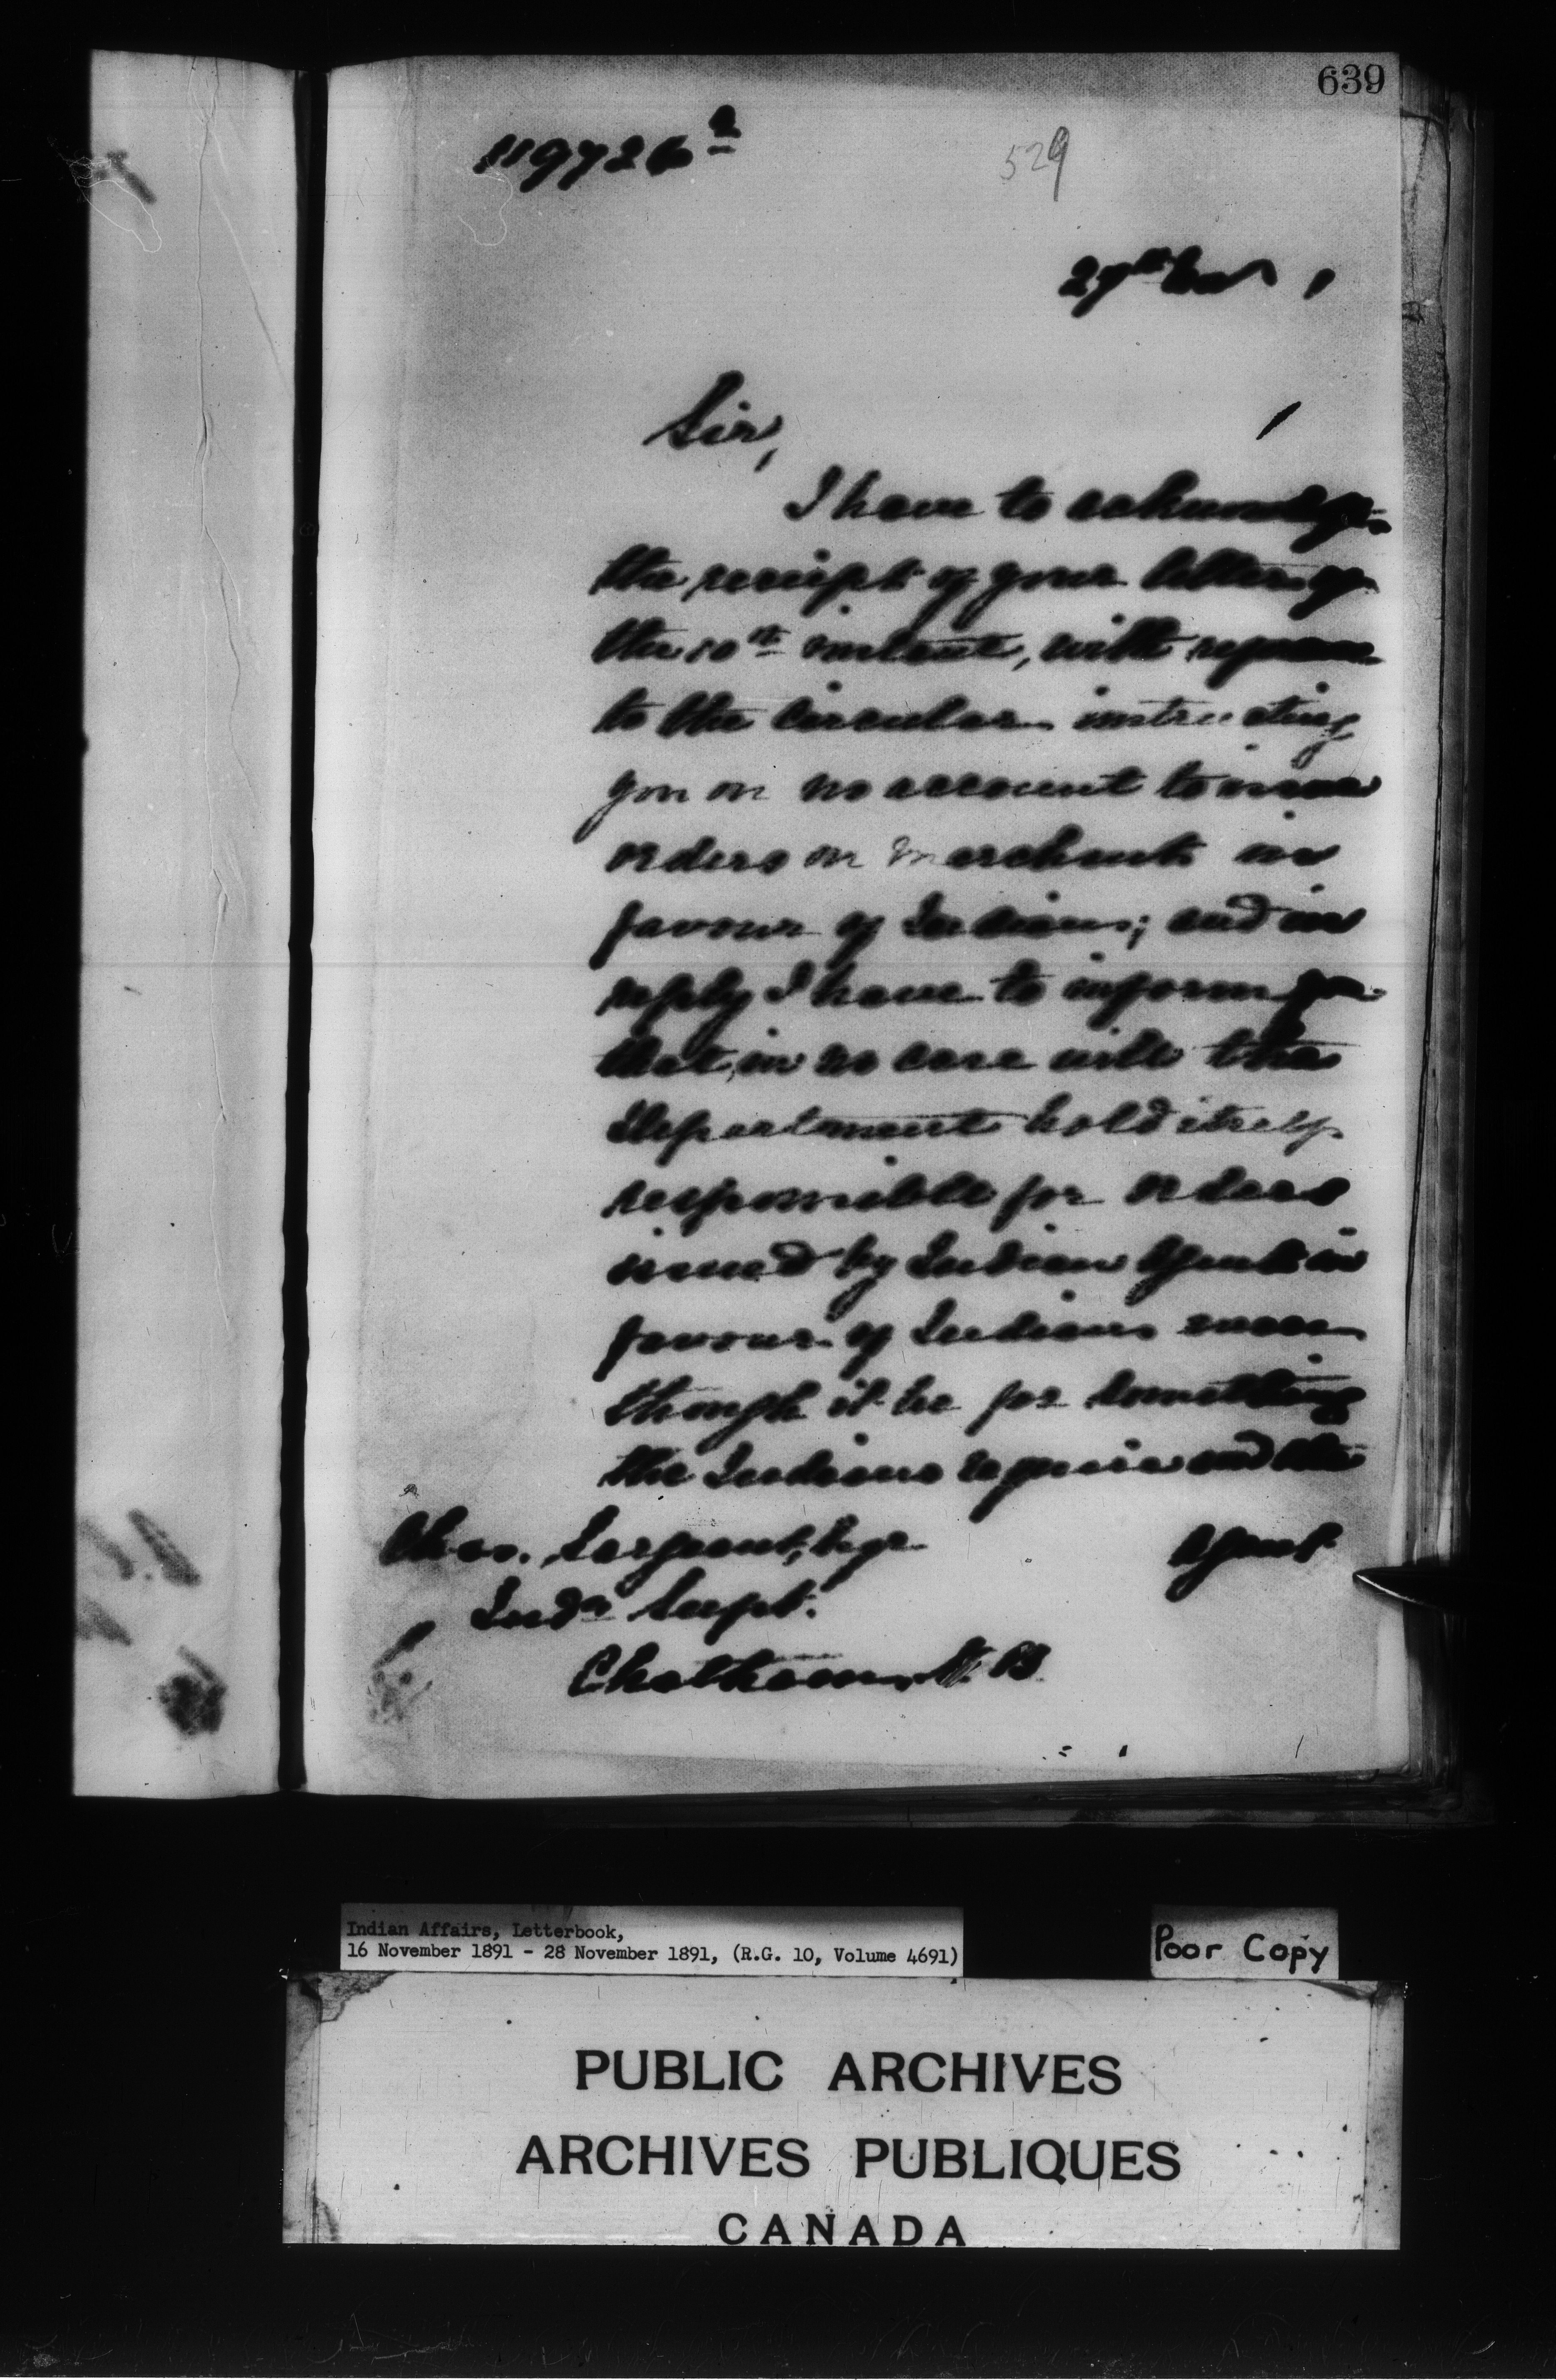 639
119726 2
529
27th Nov 1
Sir,
I have to acknowledge
the receipt of your letter of
the 10th instant, with reference
to the circular instructing
you on no account to issue
orders on merchants in
favour of Indians; and in
reply I have to inform you
that, in no case will the
Department hold itself
responsible for orders
issued by Indian Agents in
favour of Indians even
though it be for something
the Indians require and the
Agent
Chas. Sargeant, Esqr.
Indn Supt.
Chatham, N.B.
Indian Affairs, Letterbook,
16 November 1891 - 28 November 1891, (R.G. 10, Volume 4691)
Poor Copy
PUBLIC ARCHIVES
ARCHIVES PUBLIQUES
CANADA